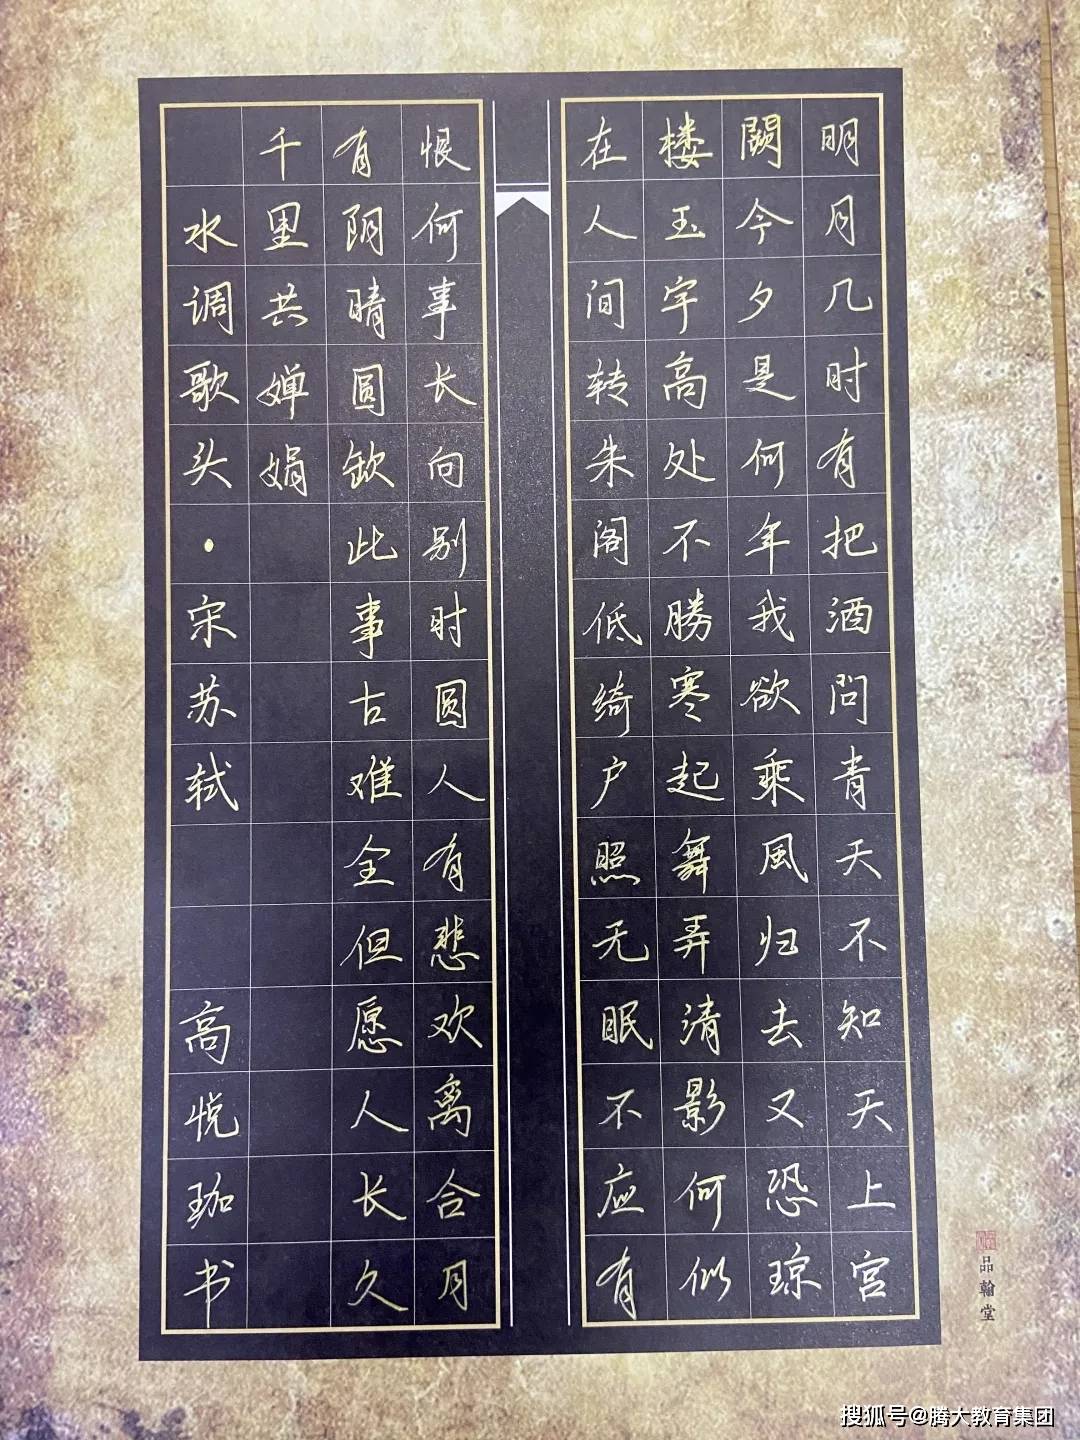 明月几时有把酒問青天不知天上宫
闕今夕是何年我欲乘風归去又恐琼
楼玉宇高处不勝寒起舞弄清影何似
在人间转朱阁低绮户照无眠不应有
恨何事长向别时圆人有悲欢离合月
有阴晴圆欽此事古难全但愿人长久
千里共婵娟
水调歌头·宋苏轼 高悦珈书
品翰堂
搜狐号@腾大教育集团